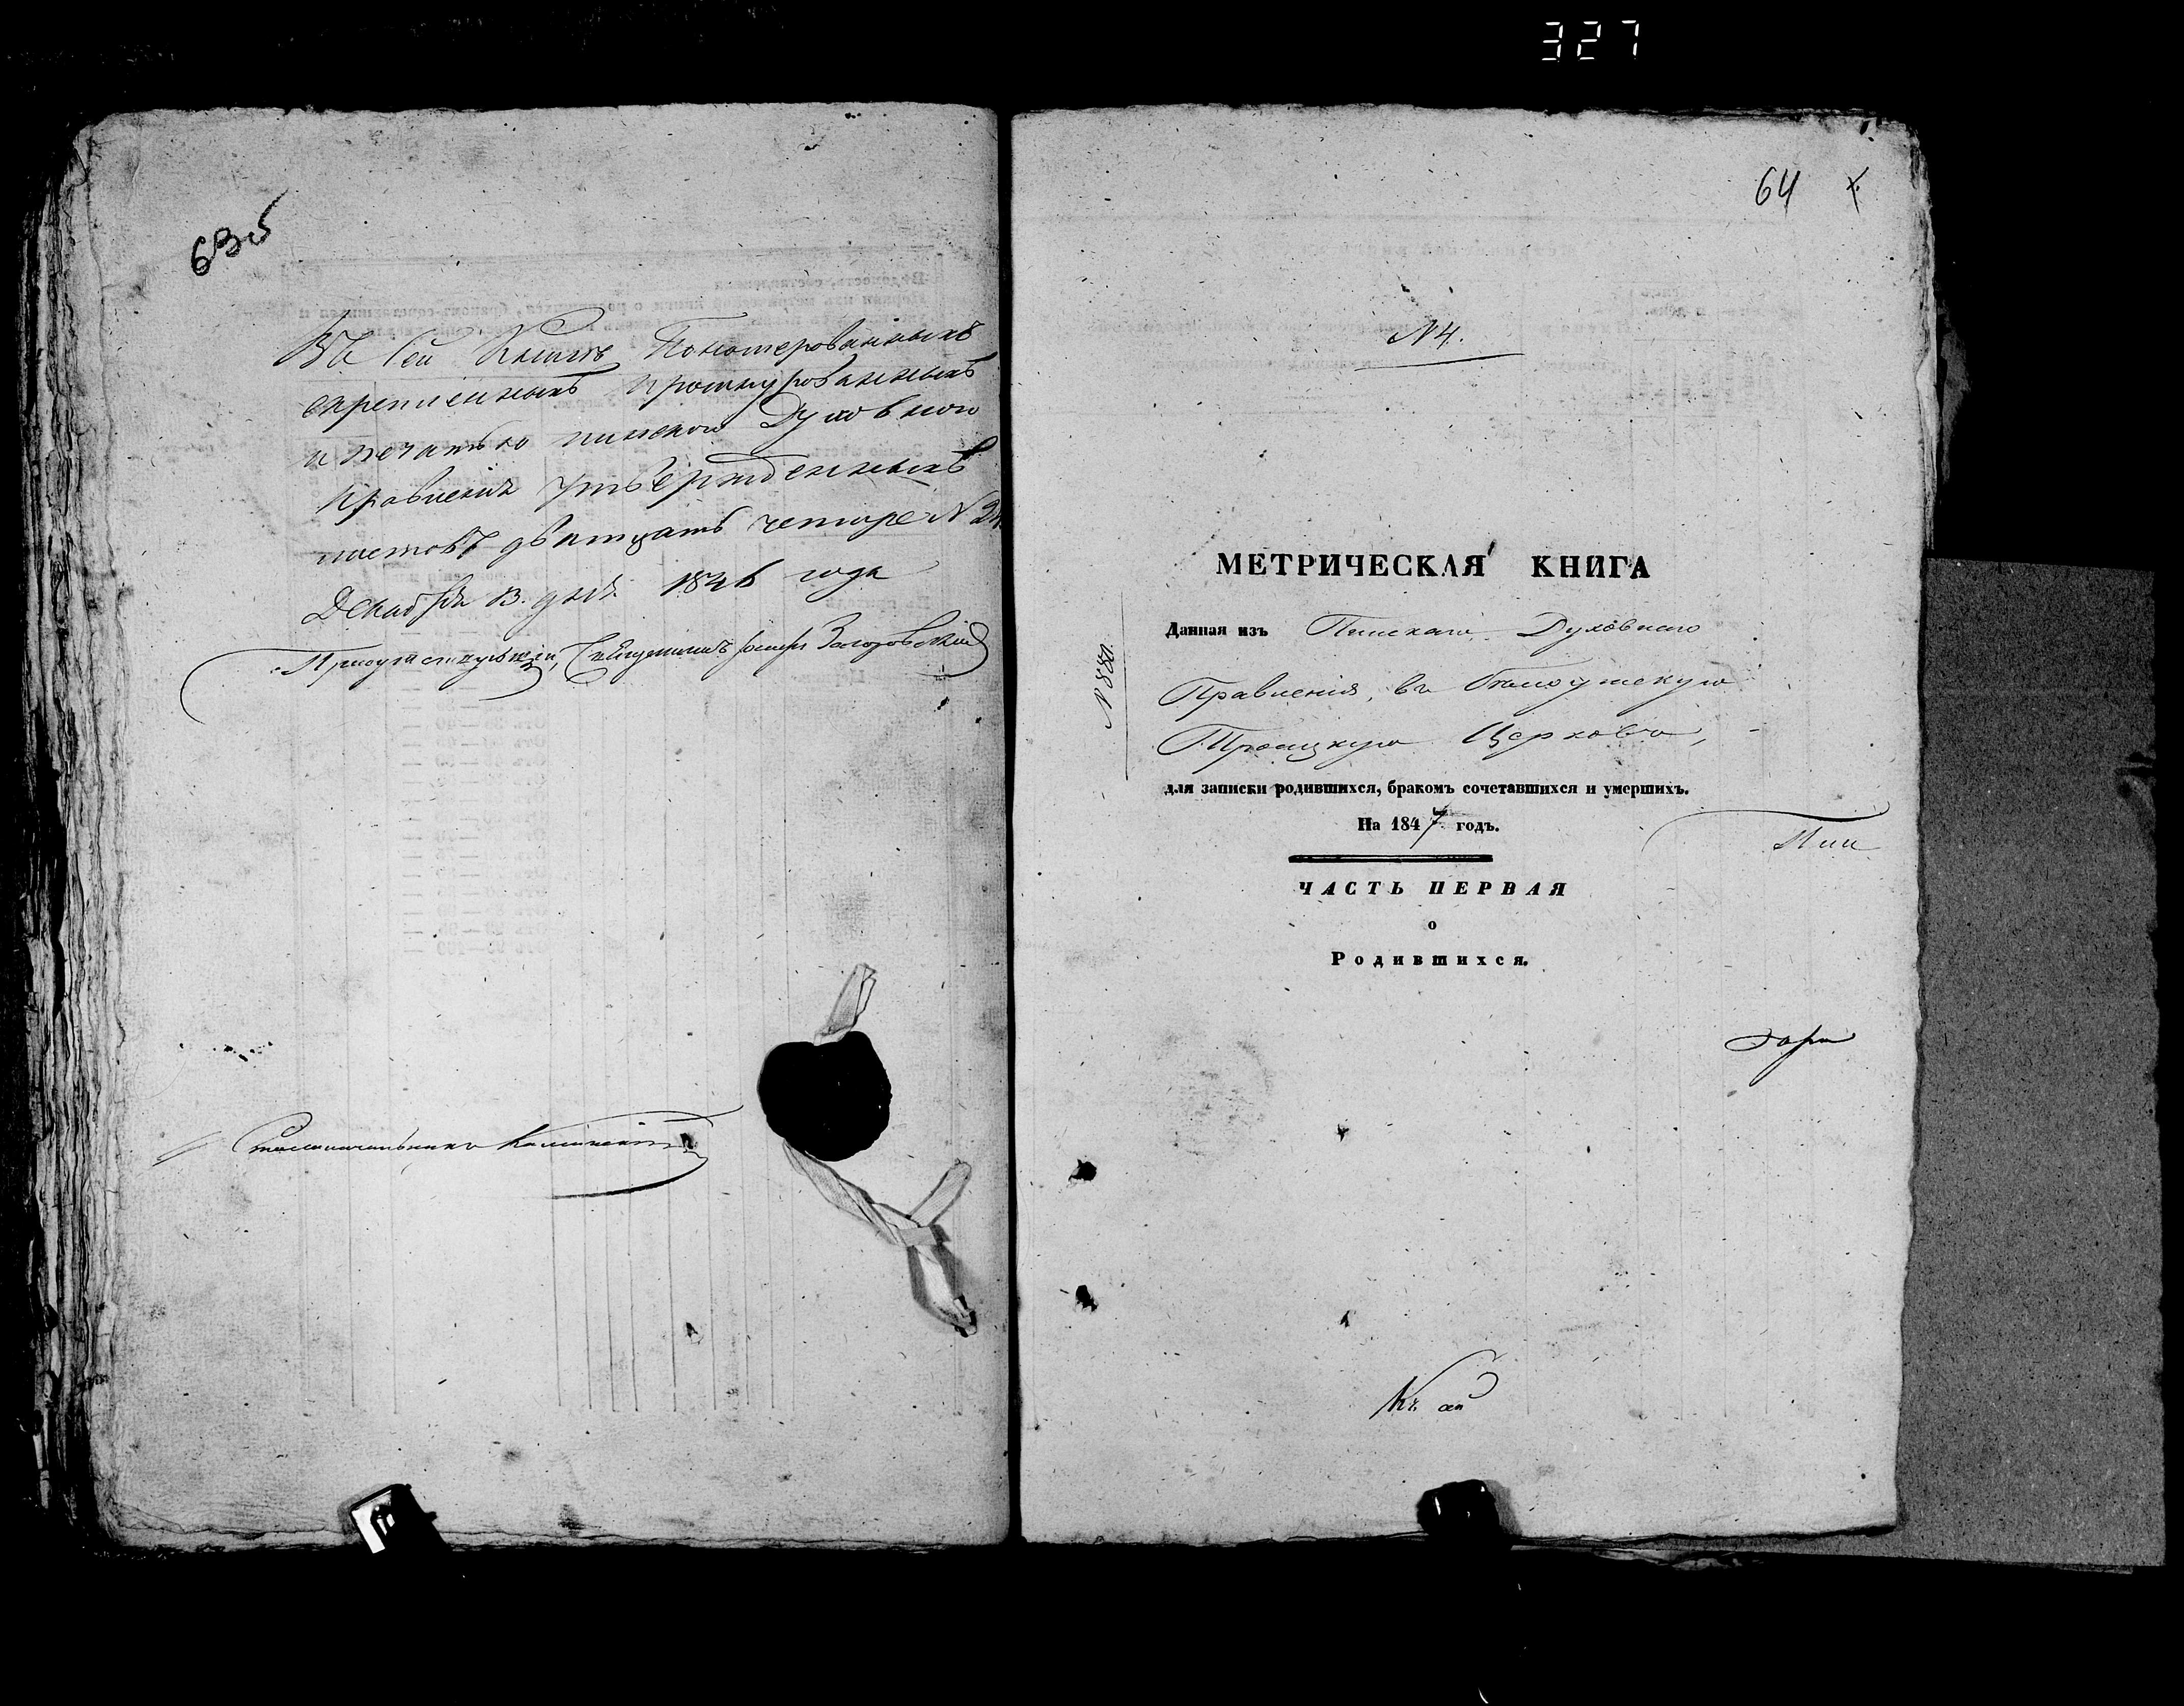 327
63об
Въ сей Книгѣ Пономерованныхъ
скрепленныхъ прошнурованныхъ
и печатью пинскаго Духовнаго
правленія утвержденныхъ
листовъ дватцать четыре N 24
Декабря 13 дня 1846 года
Присутствующій, Священникъ Загоровскій
Каминскій
64
N 4.
МЕТРИЧЕСКАЯ КНИГА
N 880.
Данная изъ Пинскаго Духовнаго
Правленія, въ
Троицкую Церковь,
для записки родившихся, бракомъ сочетавшихся и умершихъ.
На 1847 годъ.
Пин
ЧАСТЬ ПЕРВАЯ
о
Родившихся.